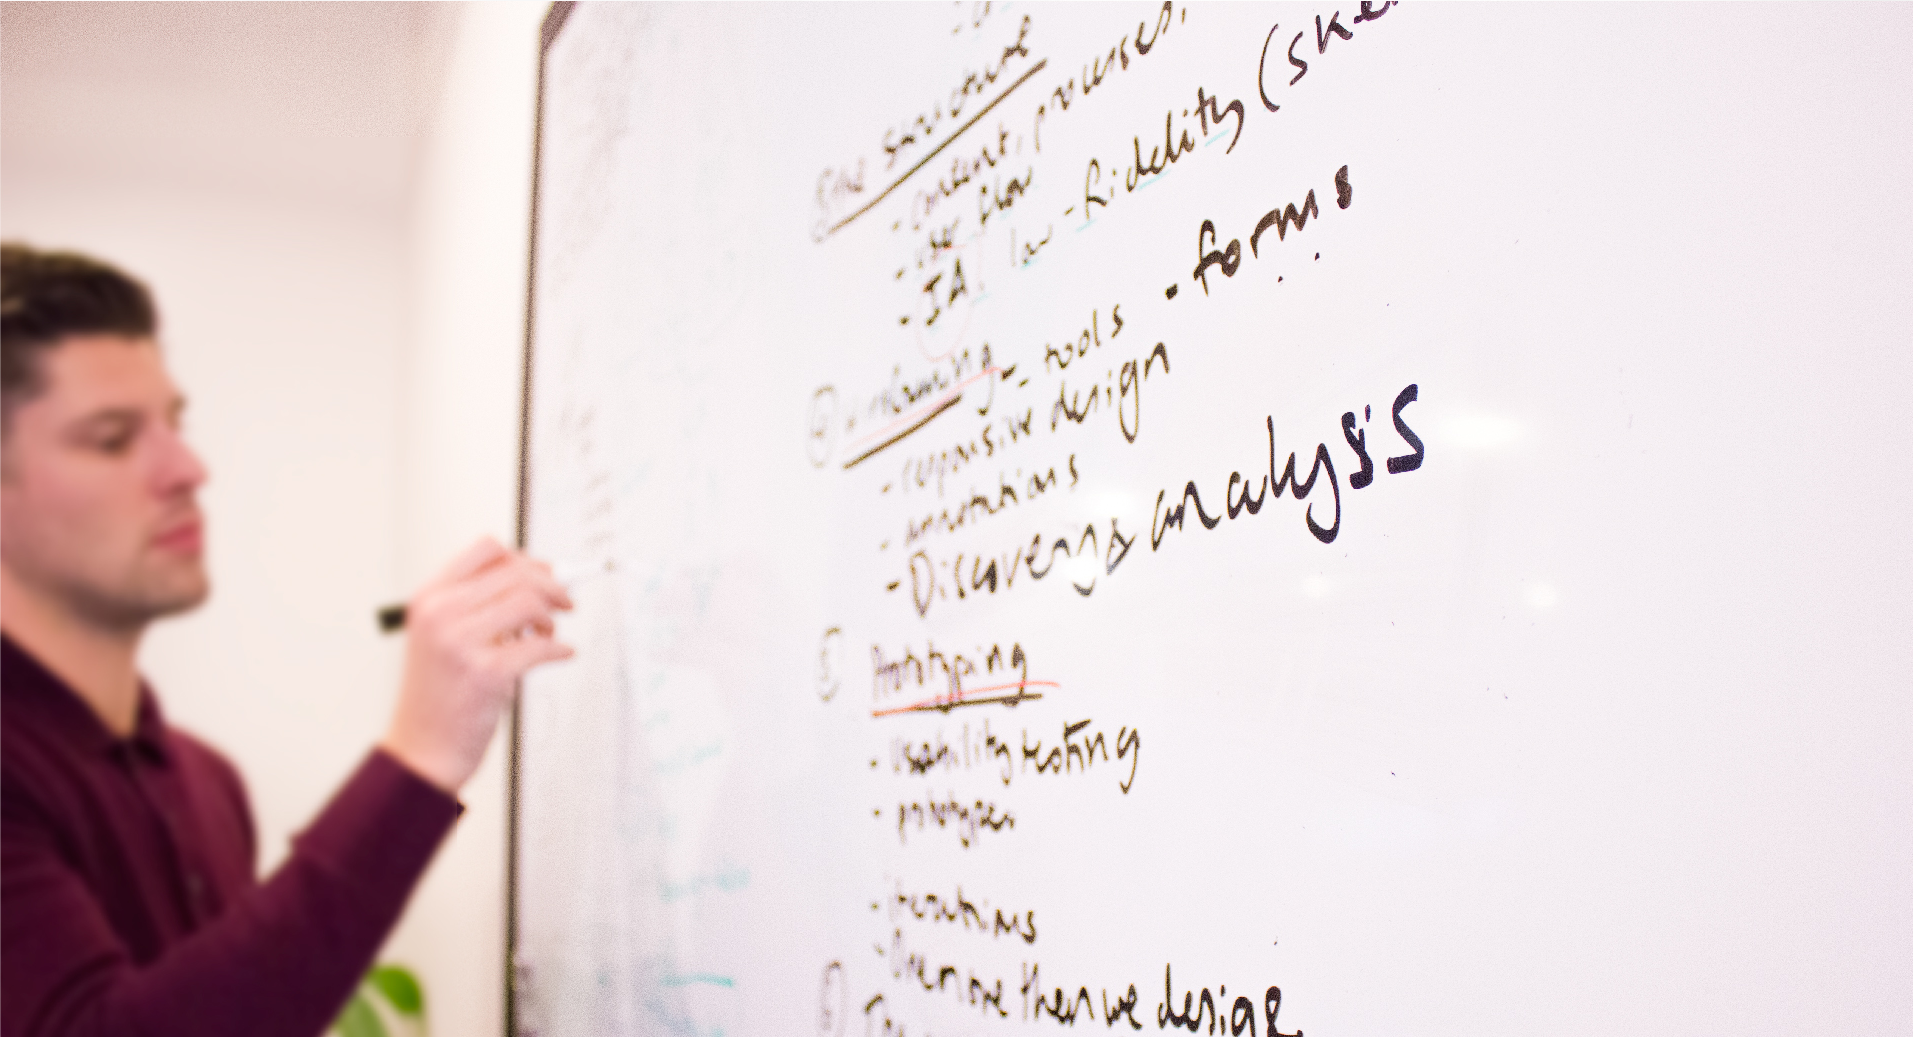 structure
- content, processes,
- user flow
- IA. low-fidelity (ske
④ wireframing - tools - forms
- responsive design
- annotations
- Discovery & analysis
⑤ Prototyping
- usability testing
- prototypes
- iterations
- more then we design